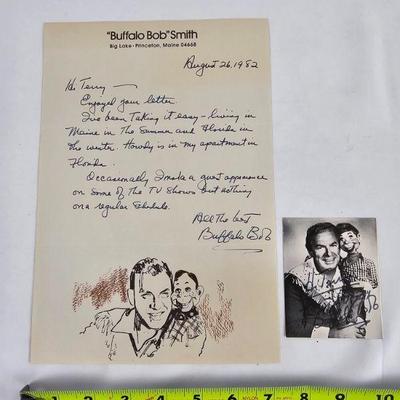 "Buffalo Bob" Smith
Big Lake · Princeton, Maine 04668
August 26, 1982
Hi Terry —
Enjoyed your letter.
I've been taking it easy - living in
Maine in the Summer and Florida in
the winter. Howdy is in my apartment in
Florida.
Occasionally I make a guest appearance
on some of the TV Shows but nothing
on a regular schedule.
All the best
Buffalo Bob
1 2 3 4 5 6 7 8 9 10